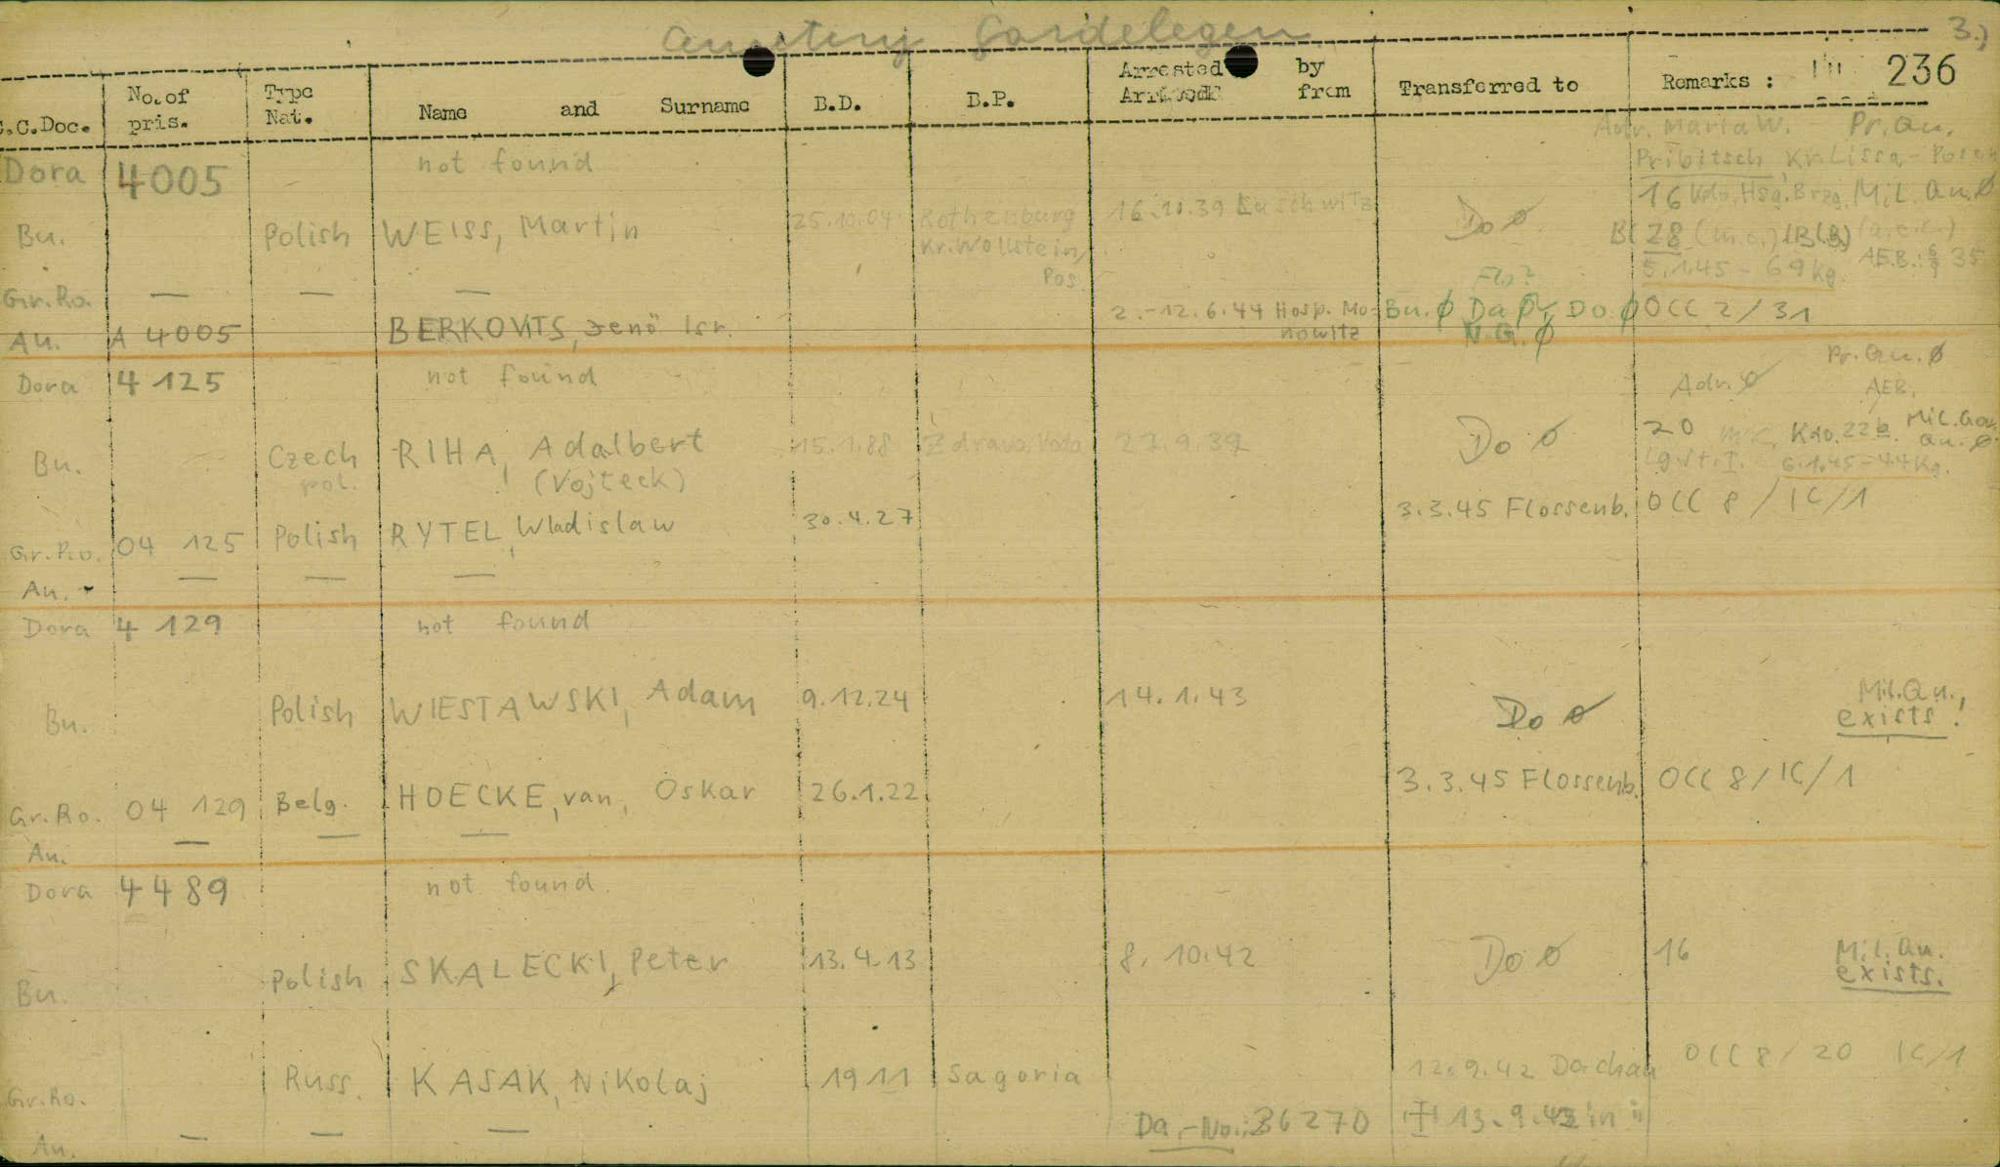 Gardelegen 3.)
C.C.Doc. No. of pris. Type Nat. Name and Surname B.D. B.P. Arrested by from Transferred to Remarks : 236
Adr. Maria W. Pr. Qu.
Dora 4005 not found Pribitsch Kr. Lissa - Posen
16 Kdo. Hsg. Brzg. Mil. Qu. Ø
Bu. Polish WEISS, Martin 25.10.04 Rothenburg 16.10.39 Do Ø
Kr. Wollstein, 28 (m.c.)
Pos. 5.1.45 - 69 kg. AEB.: 35
Flo?
Gr.Ro. — — — 2.-12.6.44 Hosp. Mo- Bu. Ø Da Ø, Do Ø OCC 2/31
Au. A 4005 BERKOVITS, Jenö Isr. nowitz N.G. Ø
Pr. Qu. Ø
Dora 4 125 not found Adr. Ø AEB.
Bu. Czech RIHA, Adalbert 15.1.88 Zdrava Voda 27.9.39 Do Ø 20 Kdo. 22b. Mil. Gov. Qu. Ø
pol. (Vojteck) 6.1.45 - 44 kg.
Gr.Ro. 04 125 Polish RYTEL, Wladislaw 30.4.27 3.3.45 Flossenb. OCC 8 / IC/1
Au. — — —
Dora 4 129 not found
Bu. Polish WIESTAWSKI, Adam 9.12.24 14.1.43 Do Ø Mil. Qu.,
exists!
Gr.Ro. 04 129 Belg. HOECKE, van, Oskar 26.1.22 3.3.45 Flossenb. OCC 8/IC/1
Au. — — —
Dora 4489 not found.
Bu. Polish SKALECKI, Peter 13.4.13 8.10.42 Do Ø 16 Mil. Qu.
exists.
Gr.Ro. Russ. KASAK, Nikolaj 1911 Sagoria 12.9.42 Dachau OCC 8/20 IC/1
Au. — — — Da.-No.: 36270 13.9.42 in "